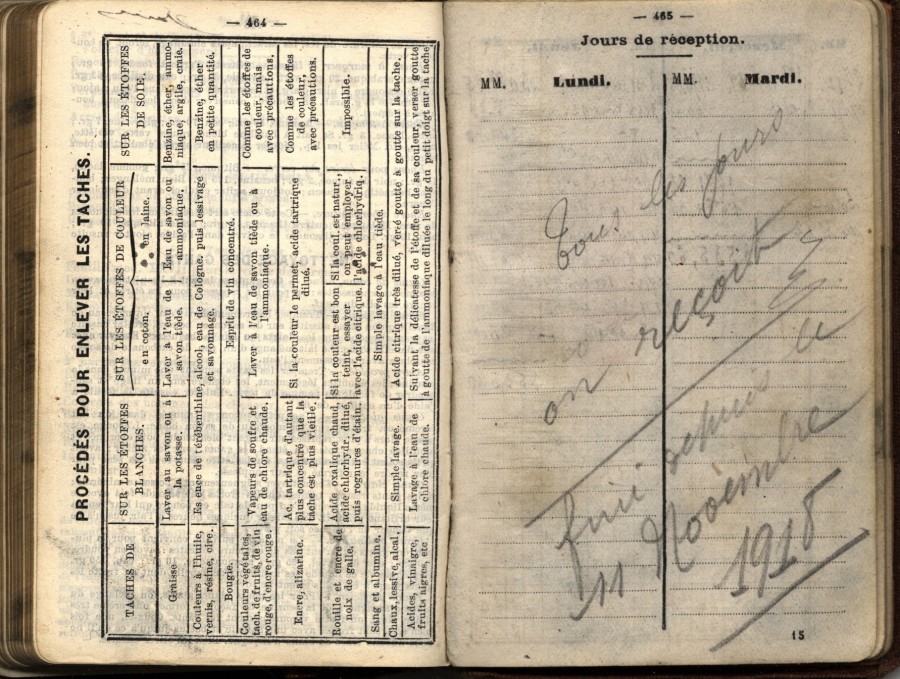 — 464 —
PROCÉDÉS POUR ENLEVER LES TACHES.
TACHES DE | SUR LES ÉTOFFES BLANCHES. | SUR LES ÉTOFFES DE COULEUR en coton. | en laine. | SUR LES ÉTOFFES DE SOIE.
Graisse | Laver au savon ou à la potasse. | Laver à l'eau de savon tiède. | Eau de savon ou ammoniaque. | Benzine, éther, ammoniaque, argile, craie.
Couleurs à l'huile, vernis, résine, cire. | Es ence de térébenthine, alcool, eau de Cologne, puis lessivage et savonnage. | Benzine, éther en petite quantité.
Bougie. | Esprit de vin concentré.
Couleurs végétales, tach. de fruits, de vin rouge, d'encre rouge. | Vapeurs de soufre et eau de chlore chaude. | Laver à l'eau de savon tiède ou à l'ammoniaque. | Comme les étoffes de couleur, mais avec précautions.
Encre, alizarine. | Ac. tartrique d'autant plus concentré que la tache est plus vieille. | Si la couleur le permet, acide tartrique dilué. | Comme les étoffes de couleur, avec précautions.
Rouille et encre de noix de galle. | Acide oxalique chaud, acide chlorhydr. dilué, puis rognures d'étain. | Si la couleur est bon teint, essayer avec l'acide citrique. | Si la coul. est natur., on peut employer l'acide chlorhydriq. | Impossible.
Sang et albumine. | Simple lavage à l'eau tiède.
Chaux, lessive, alcal. | Simple lavage. | Acide citrique très dilué, versé goutte à goutte sur la tache.
Acides, vinaigre, fruits aigres, etc | Lavage à l'eau de chlore chaude. | Suivant la délicatesse de l'étoffe et de sa couleur, verser goutte à goutte de l'ammoniaque diluée le long du petit doigt sur la tache
— 465 —
Jours de réception.
MM. Lundi. MM. Mardi.
Tous les jours
on reçoit
fini depuis le
11 Novembre
1918
15